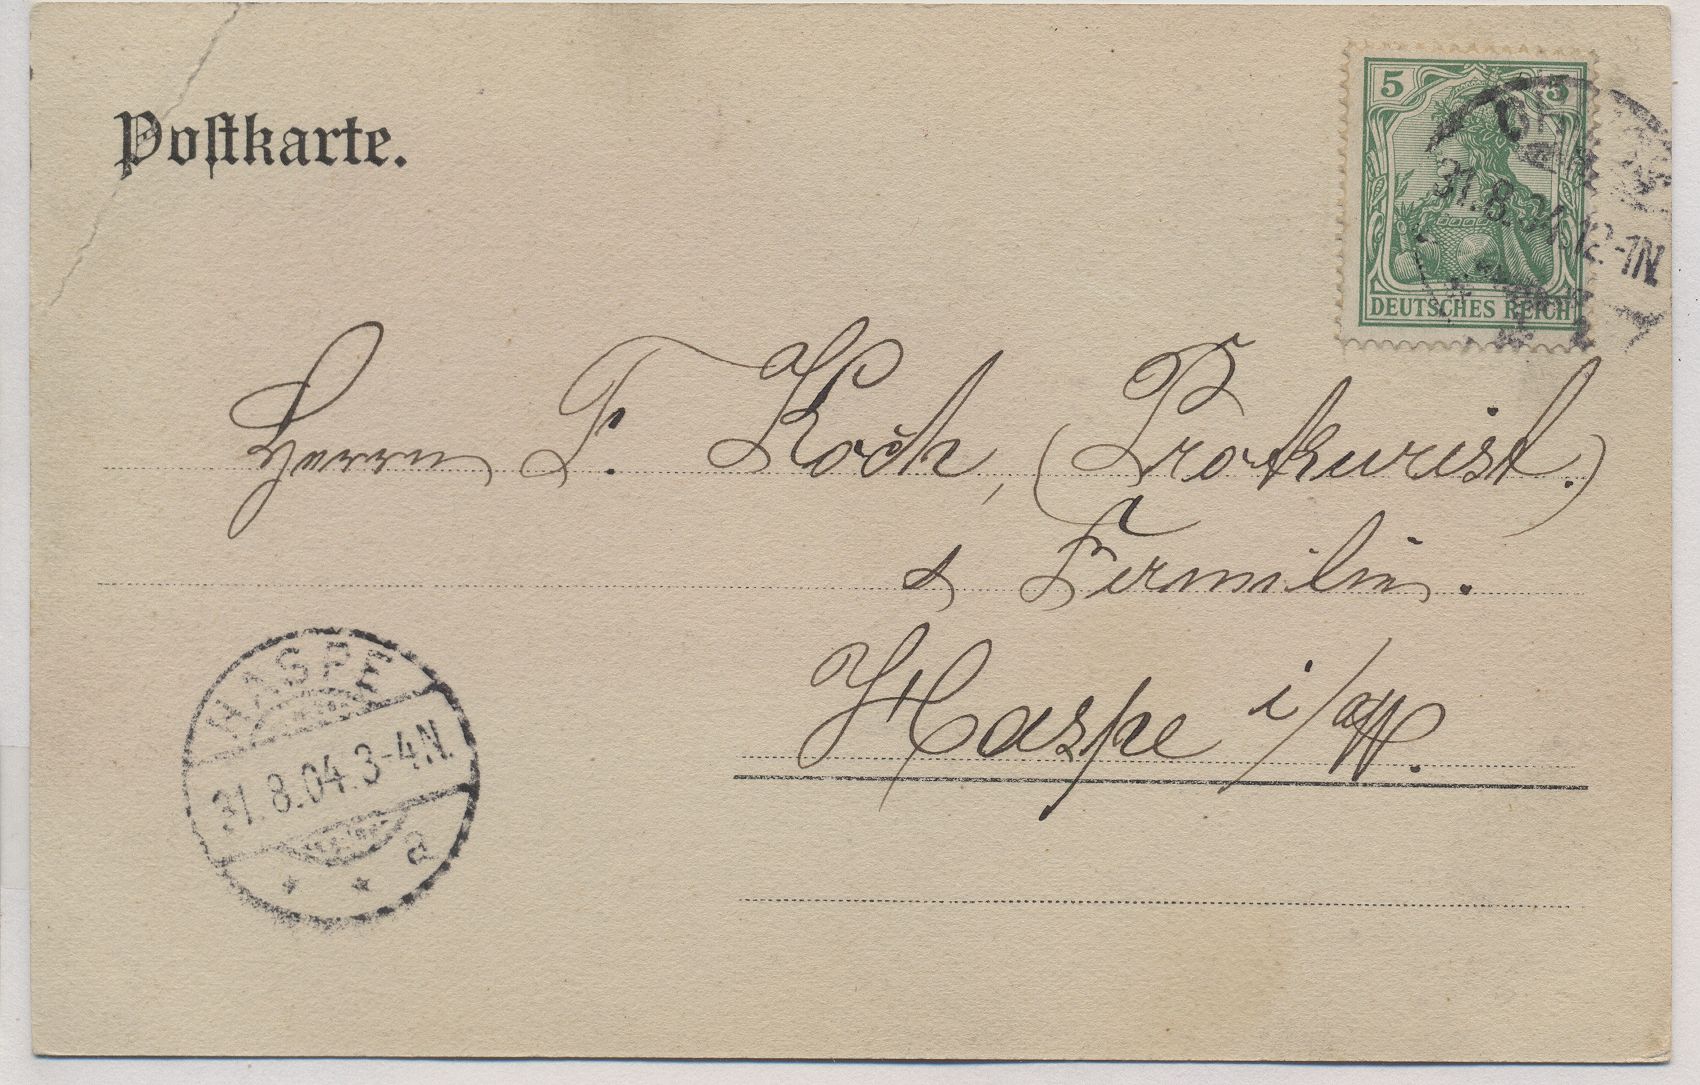 Postkarte.
5 5
DEUTSCHES REICH
31.8.04. 12-1N.
Herrn F. Koch, (Prokurist.)
& Fermilin.
Haspe i/W.
HASPE
31.8.04.3-4N.
* * a